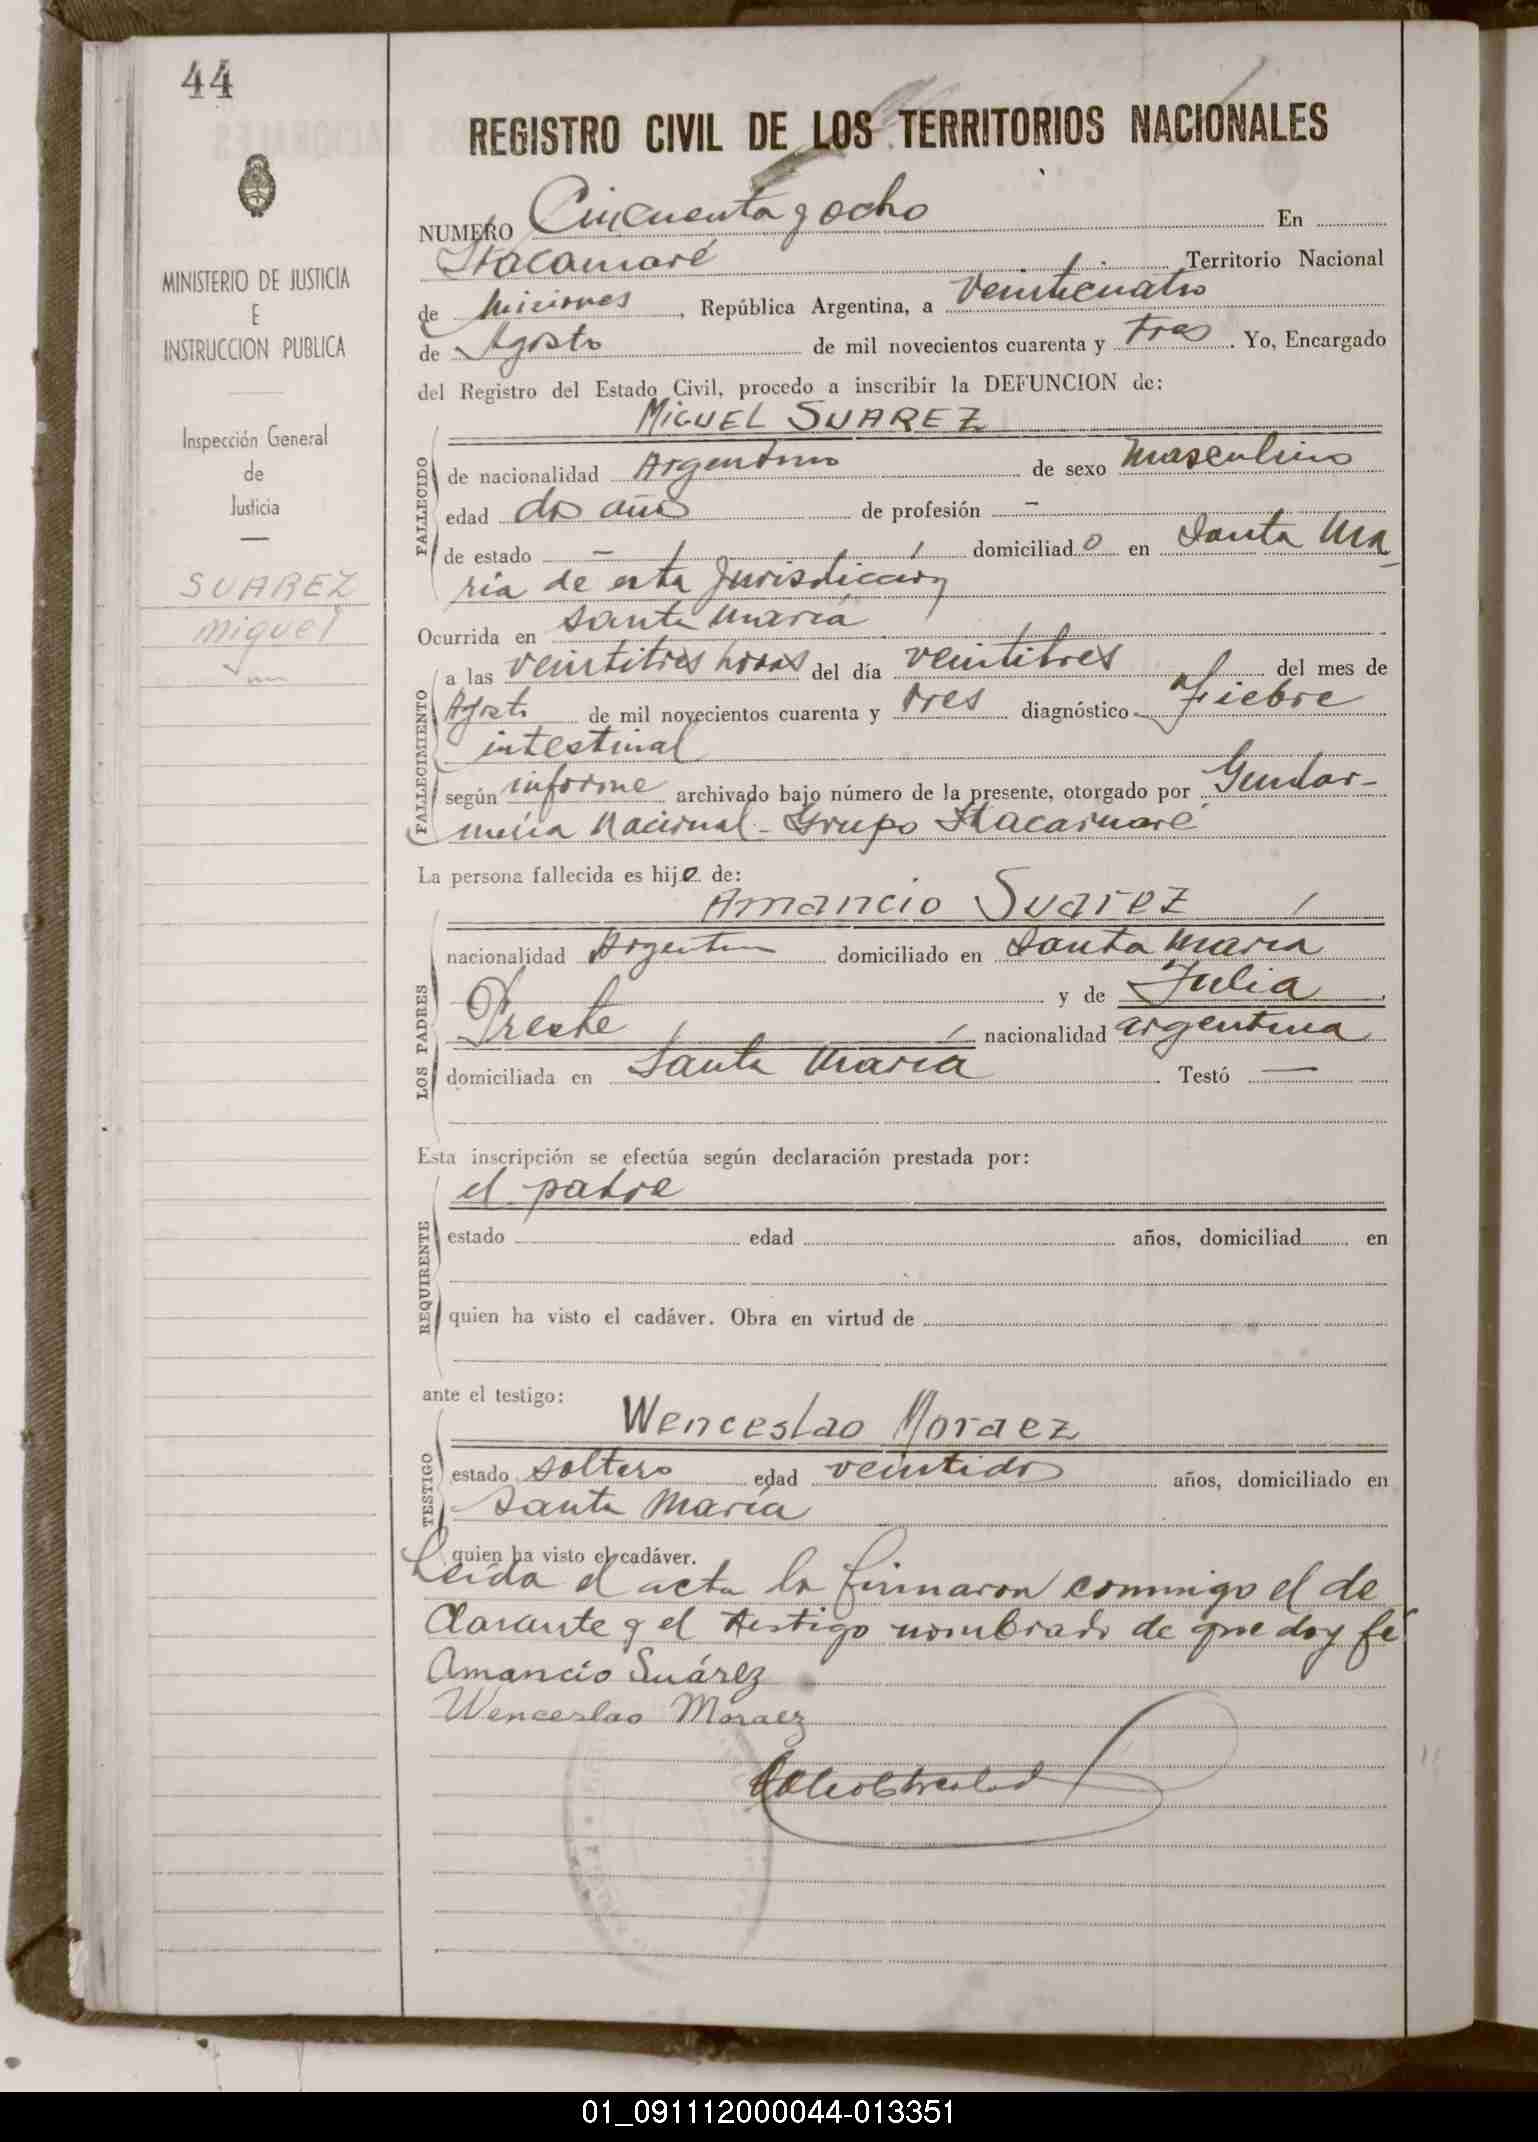 44
REGISTRO CIVIL DE LOS TERRITORIOS NACIONALES
MINISTERIO DE JUSTICIA
E
INSTRUCCION PUBLICA
Inspección General
de
Justicia
SUAREZ
Miguel
NUMERO Cincuenta y ocho En
Itacaruaré Territorio Nacional
de Misiones, República Argentina, a veinticuatro
de Agosto de mil novecientos cuarenta y tres. Yo, Encargado
del Registro del Estado Civil, procedo a inscribir la DEFUNCION de:
MIGUEL SUAREZ
FALLECIDO
de nacionalidad Argentino de sexo Masculino
edad dos años de profesión -
de estado - domiciliado en Santa Ma
ria de esta Jurisdiccion
Ocurrida en Santa María
FALLECIMIENTO
a las veintitres horas del día veintitres del mes de
Agosto de mil novecientos cuarenta y tres diagnóstico Fiebre
intestinal
según informe archivado bajo número de la presente, otorgado por Gendar-
mería Nacional - Grupo Itacaruaré
La persona fallecida es hijo de:
Amancio Suarez
LOS PADRES
nacionalidad Argentin domiciliado en Santa Maria
y de Julia
Preste nacionalidad argentina
domiciliada en Santa Maria Testó —
Esta inscripción se efectúa según declaración prestada por:
el padre
REQUIRENTE
estado edad años, domiciliad en
quien ha visto el cadáver. Obra en virtud de
ante el testigo:
Wenceslao Moraez
TESTIGO
estado soltero edad veintidos años, domiciliado en
Santa María
quien ha visto el cadáver.
Leida el acta la firmaron conmigo el de
clarante y el testigo nombrado de que doy fé
Amancio Suárez
Wenceslao Moraez
01_091112000044-013351